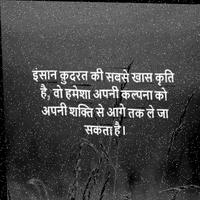 इंसान कुदरत की सबसे खास कृति
है, वो हमेशा अपनी कल्पना को
अपनी शक्ति से आगे तक ले जा
सकता है।